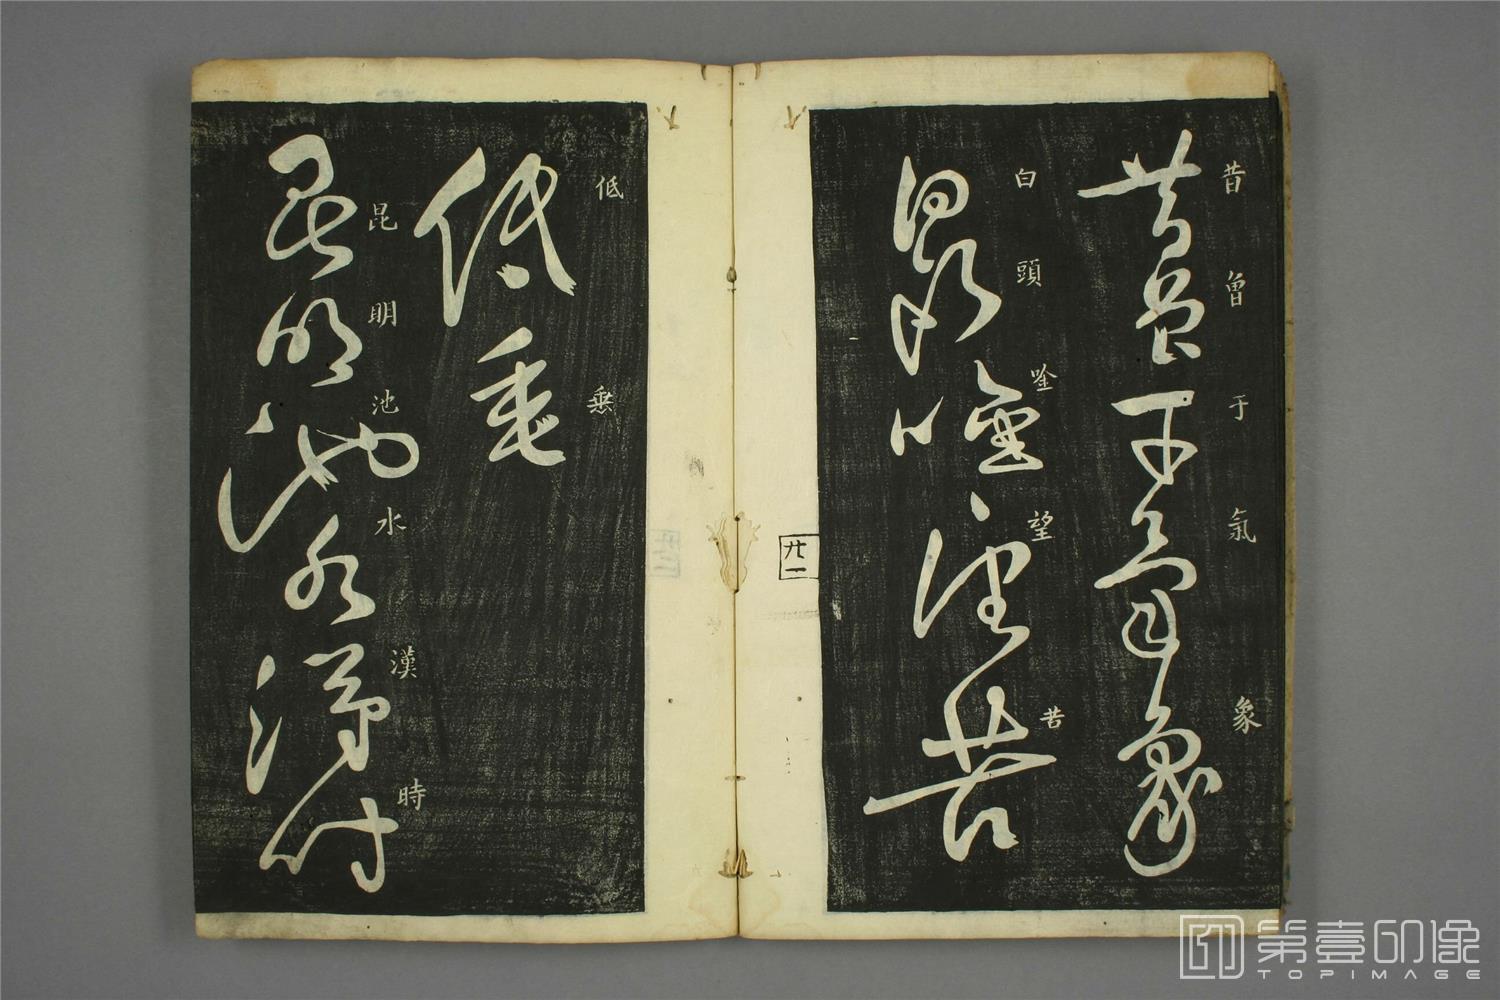 昔曾于氣象
昔曾于氣象
白頭唫望苦
白頭唫望苦
廿一
低垂
低垂
昆明池水漢時
昆明池水漢時
第壹印像
TOPIMAGE